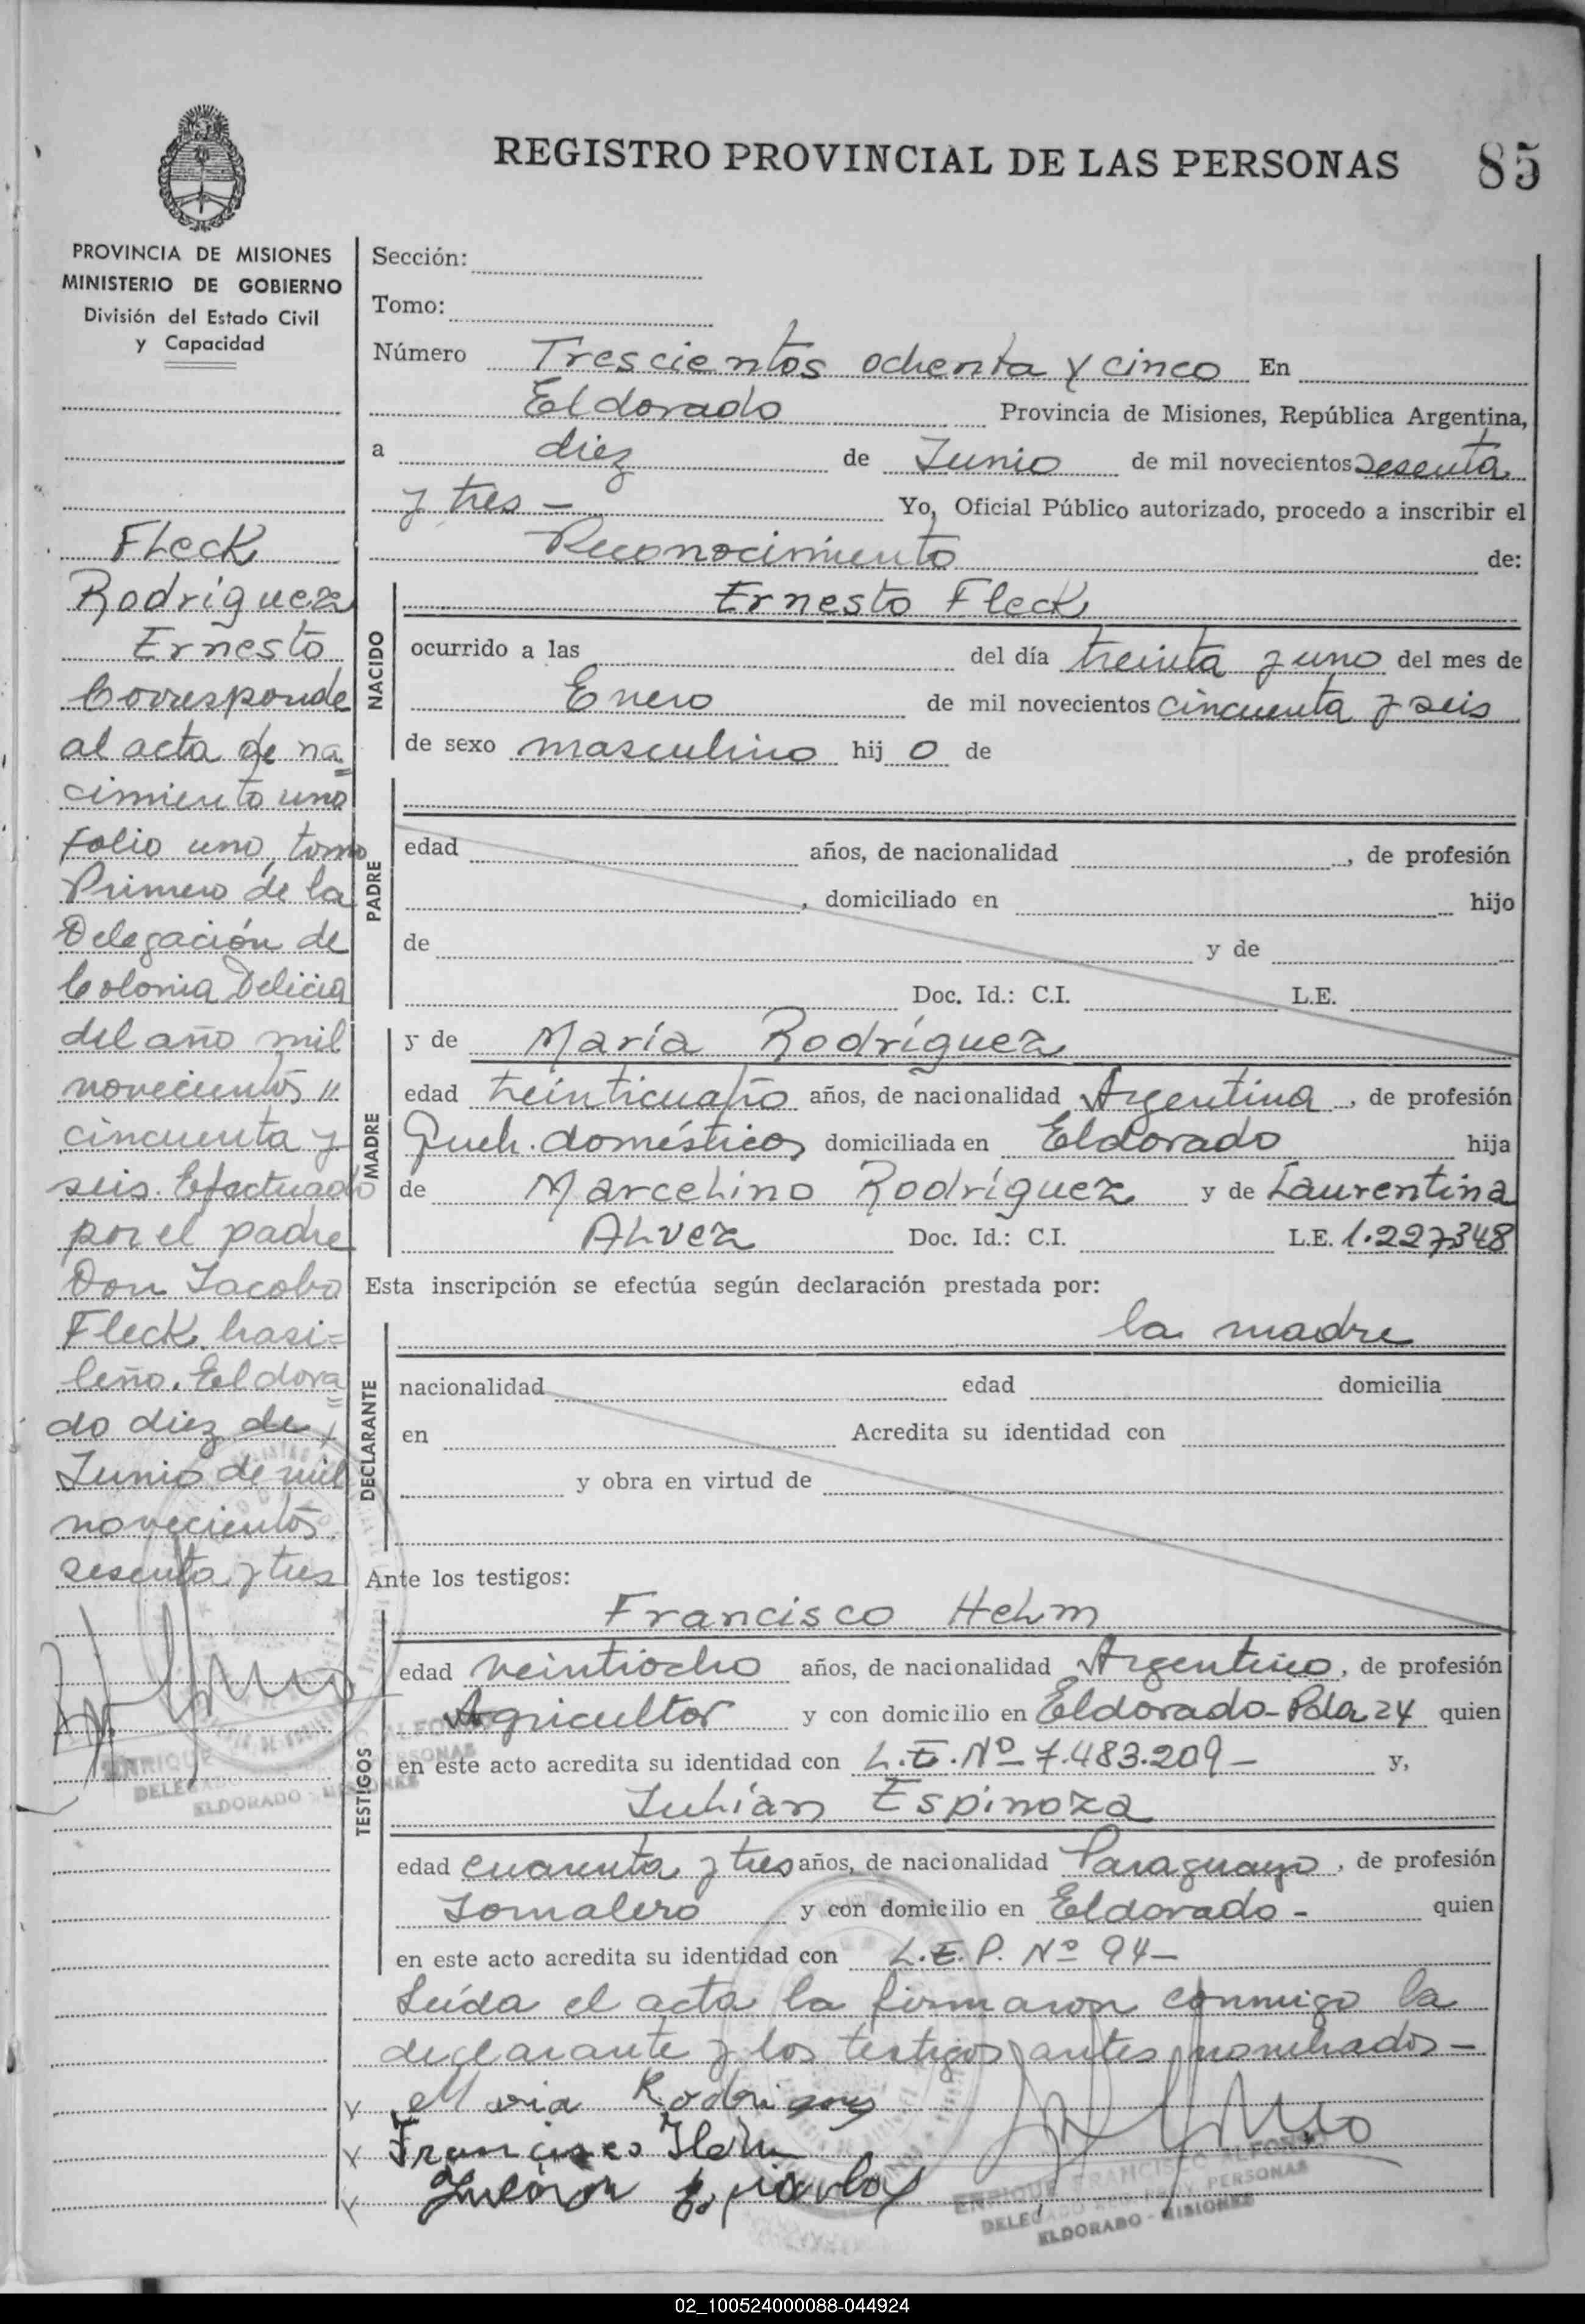 REGISTRO PROVINCIAL DE LAS PERSONAS 85
PROVINCIA DE MISIONES
MINISTERIO DE GOBIERNO
División del Estado Civil
y Capacidad
Fleck
Rodríguez
Ernesto
Corresponde
al acta de na=
cimiento uno
folio uno, tomo
Primero de la
Delegación de
Colonia Delicia
del año mil
novecientos "
cincuenta y
seis. Efectuado
por el padre
Don Jacobo
Fleck, brasi=
leño. Eldora=
do diez de
Junio de mil
novecientos
sesenta y tres
Sección:
Tomo:
Número Trescientos ochenta y cinco En
Eldorado Provincia de Misiones, República Argentina,
a diez de Junio de mil novecientos sesenta
y tres - Yo, Oficial Público autorizado, procedo a inscribir el
Reconocimiento de:
NACIDO
Ernesto Fleck
ocurrido a las del día treinta y uno del mes de
Enero de mil novecientos cincuenta y seis
de sexo masculino hij o de
PADRE
edad años, de nacionalidad , de profesión
, domiciliado en hijo
de y de
Doc. Id.: C.I. L.E.
MADRE
y de María Rodríguez
edad treinticuatro años, de nacionalidad Argentina , de profesión
Queh. domésticos domiciliada en Eldorado hija
de Marcelino Rodríguez y de Laurentina
Alvez Doc. Id.: C.I. L.E. 1.227348
Esta inscripción se efectúa según declaración prestada por:
DECLARANTE
la madre
nacionalidad edad domicilia
en Acredita su identidad con
y obra en virtud de
Ante los testigos:
TESTIGOS
Francisco Helm
edad veintiocho años, de nacionalidad Argentino, de profesión
Agricultor y con domicilio en Eldorado-Pda 24 quien
en este acto acredita su identidad con L.E. Nº 7.483.209- y,
Julián Espinoza
edad cuarenta y tres años, de nacionalidad Paraguayo, de profesión
Jornalero y con domicilio en Eldorado - quien
en este acto acredita su identidad con L.E.P. Nº 94-
Leída el acta la firmaron conmigo la
declarante y los testigos antes nombrados-
Maria Rodriguez
Francisco Helm
ENRIQUE FRANCISCO ALFONSO
DELEGADO REG. PROV. PERSONAS
ELDORADO - MISIONES
02_100524000088-044924